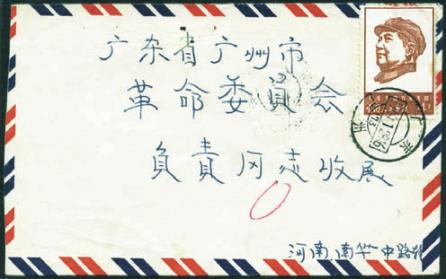 广东省广州市
革命委員会
負責同志收展
河南南华中路